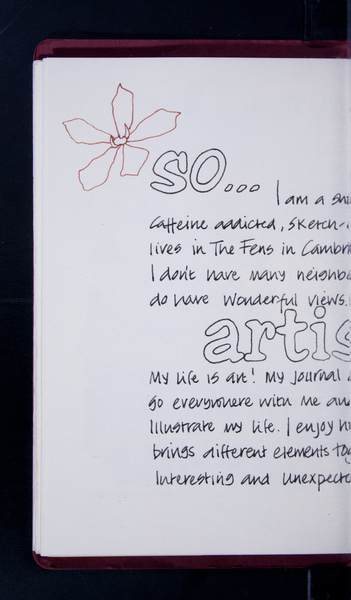 so...
I am a
caffeine addicted, sketch-
lives in The Fens in
I don't have many
do have wonderful views.
My life is art! My journal
go everywhere with me
Illustrate my life. I enjoy
brings different elements
Interesting and